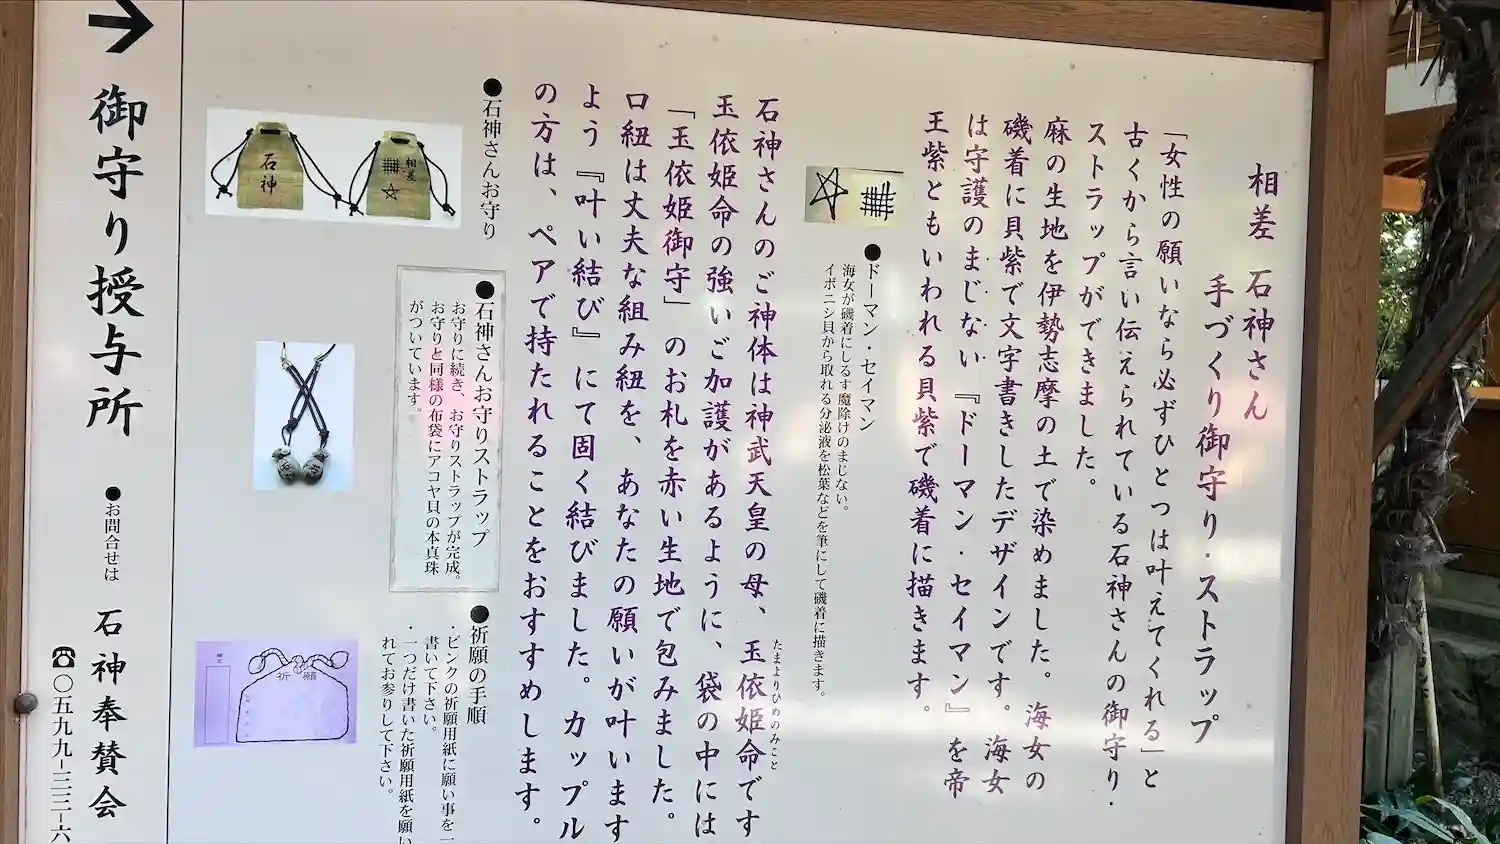 相差 石神さん
手づくり御守り・ストラップ
「女性の願いなら必ずひとつは叶えてくれる」と
古くから言い伝えられている石神さんの御守り・
ストラップができました。
麻の生地を伊勢志摩の土で染めました。海女の
磯着に貝紫で文字書きしたデザインです。海女
は守護のまじない『ドーマン・セイマン』を帝
王紫ともいわれる貝紫で磯着に描きます。
●ドーマン・セイマン
海女が磯着にしるす魔除けのまじない。
イボニシ貝から取れる分泌液を松葉などを筆にして磯着に描きます。
石神さんのご神体は神武天皇の母、玉依姫命です
たまよりひめのみこと
玉依姫命の強いご加護があるように、袋の中には
「玉依姫御守」のお札を赤い生地で包みました。
口紐は丈夫な組み紐を、あなたの願いが叶います
よう『叶い結び』にて固く結びました。カップル
の方は、ペアで持たれることをおすすめします。
●石神さんお守り
石神
相差
●石神さんお守りストラップ
お守りに続き、お守りストラップが完成。
お守りと同様の布袋にアコヤ貝の本真珠
がついています。
●祈願の手順
・ピンクの祈願用紙に願い事を一
書いて下さい。
・一つだけ書いた祈願用紙を願い
れてお参りして下さい。
祈願
→御守り授与所
●お問合せは 石神奉賛会
☎〇五九九-三三-六